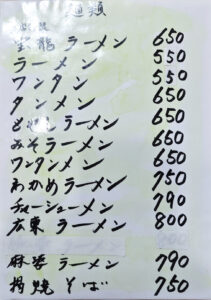 麺類
宝龍ラーメン 650
ラーメン 550
ワンタン 550
タンメン 650
もやしラーメン 650
みそラーメン 650
ワンタンメン 650
わかめラーメン 750
チャーシューメン 790
広東ラーメン 800
麻婆ラーメン 790
揚焼そば 750